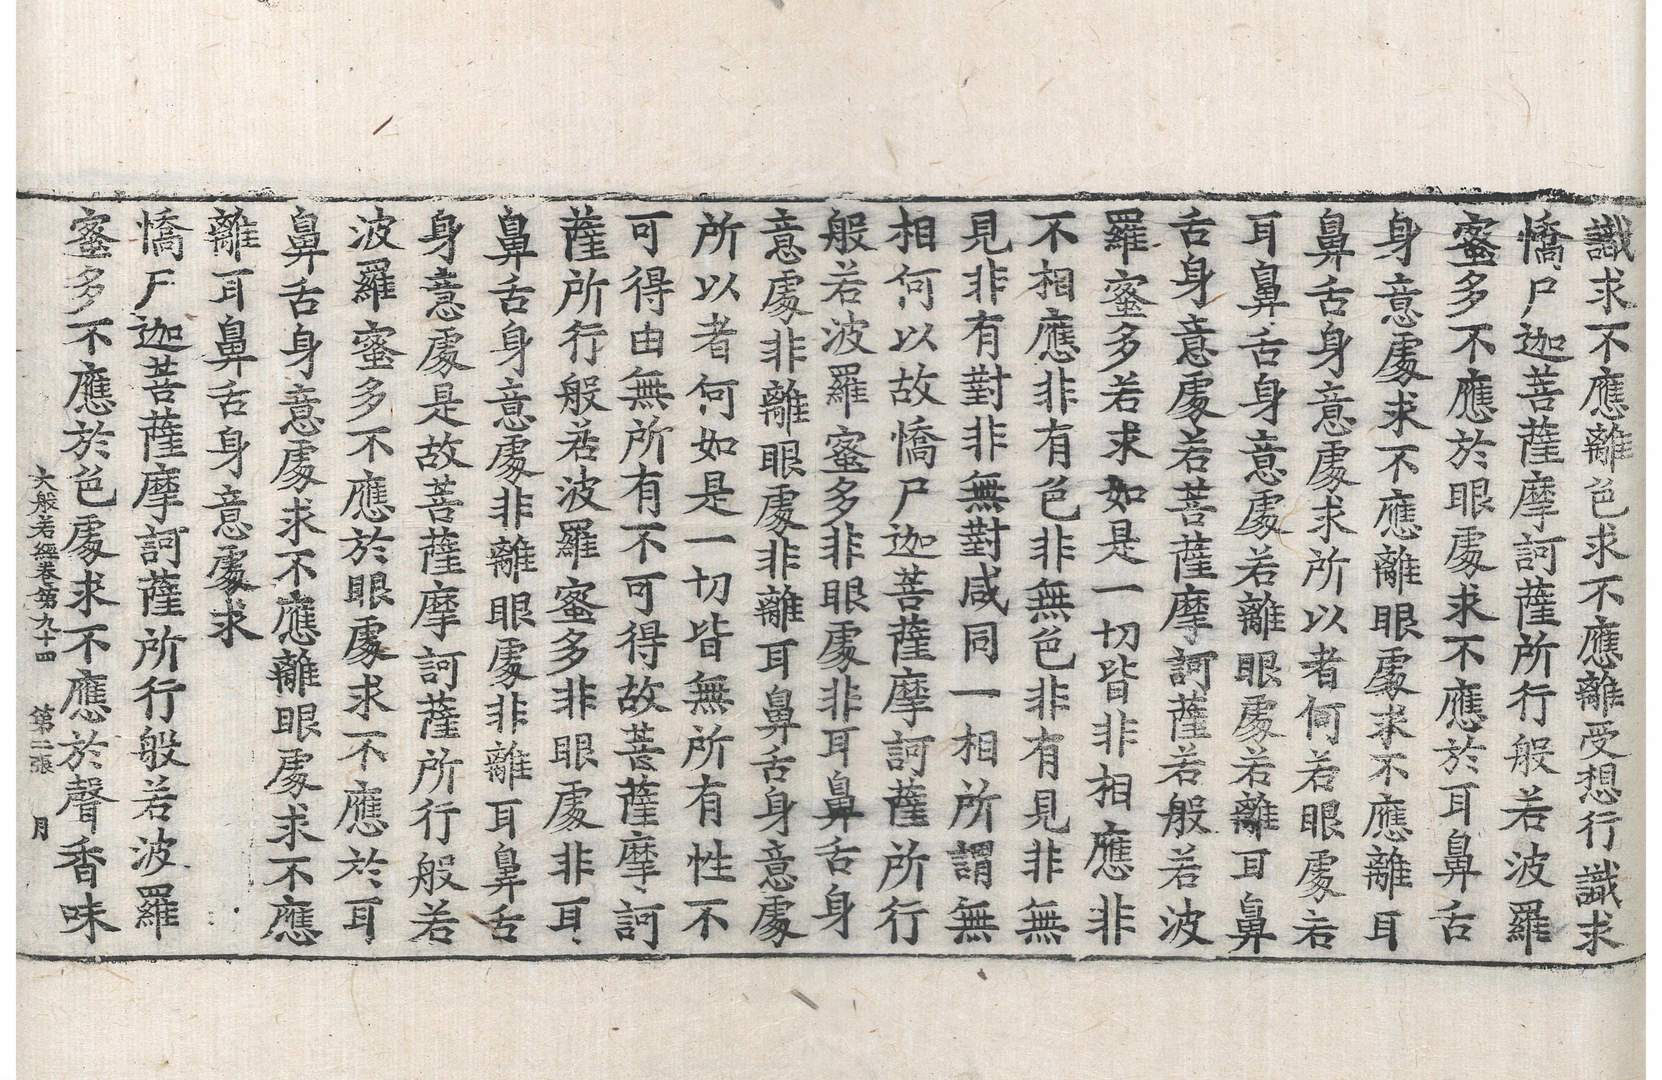 識求不應離色求不應離受想行識求
憍尸迦菩薩摩訶薩所行般若波羅
蜜多不應於眼處求不應於耳鼻舌
身意處求不應離眼處求不應離耳
鼻舌身意處求所以者何若眼處若
耳鼻舌身意處若離眼處若離耳鼻
舌身意處若菩薩摩訶薩若般若波
羅蜜多若求如是一切皆非相應非
不相應非有色非無色非有見非無
見非有對非無對咸同一相所謂無
相何以故憍尸迦菩薩摩訶薩所行
般若波羅蜜多非眼處非耳鼻舌身
意處非離眼處非離耳鼻舌身意處
所以者何如是一切皆無所有性不
可得由無所有不可得故菩薩摩訶
薩所行般若波羅蜜多非眼處非耳
鼻舌身意處非離眼處非離耳鼻舌
身意處是故菩薩摩訶薩所行般若
波羅蜜多不應於眼處求不應於耳
鼻舌身意處求不應離眼處求不應
離耳鼻舌身意處求
憍尸迦菩薩摩訶薩所行般若波羅
蜜多不應於色處求不應於聲香味
大般若經卷第九十四　第二張　月